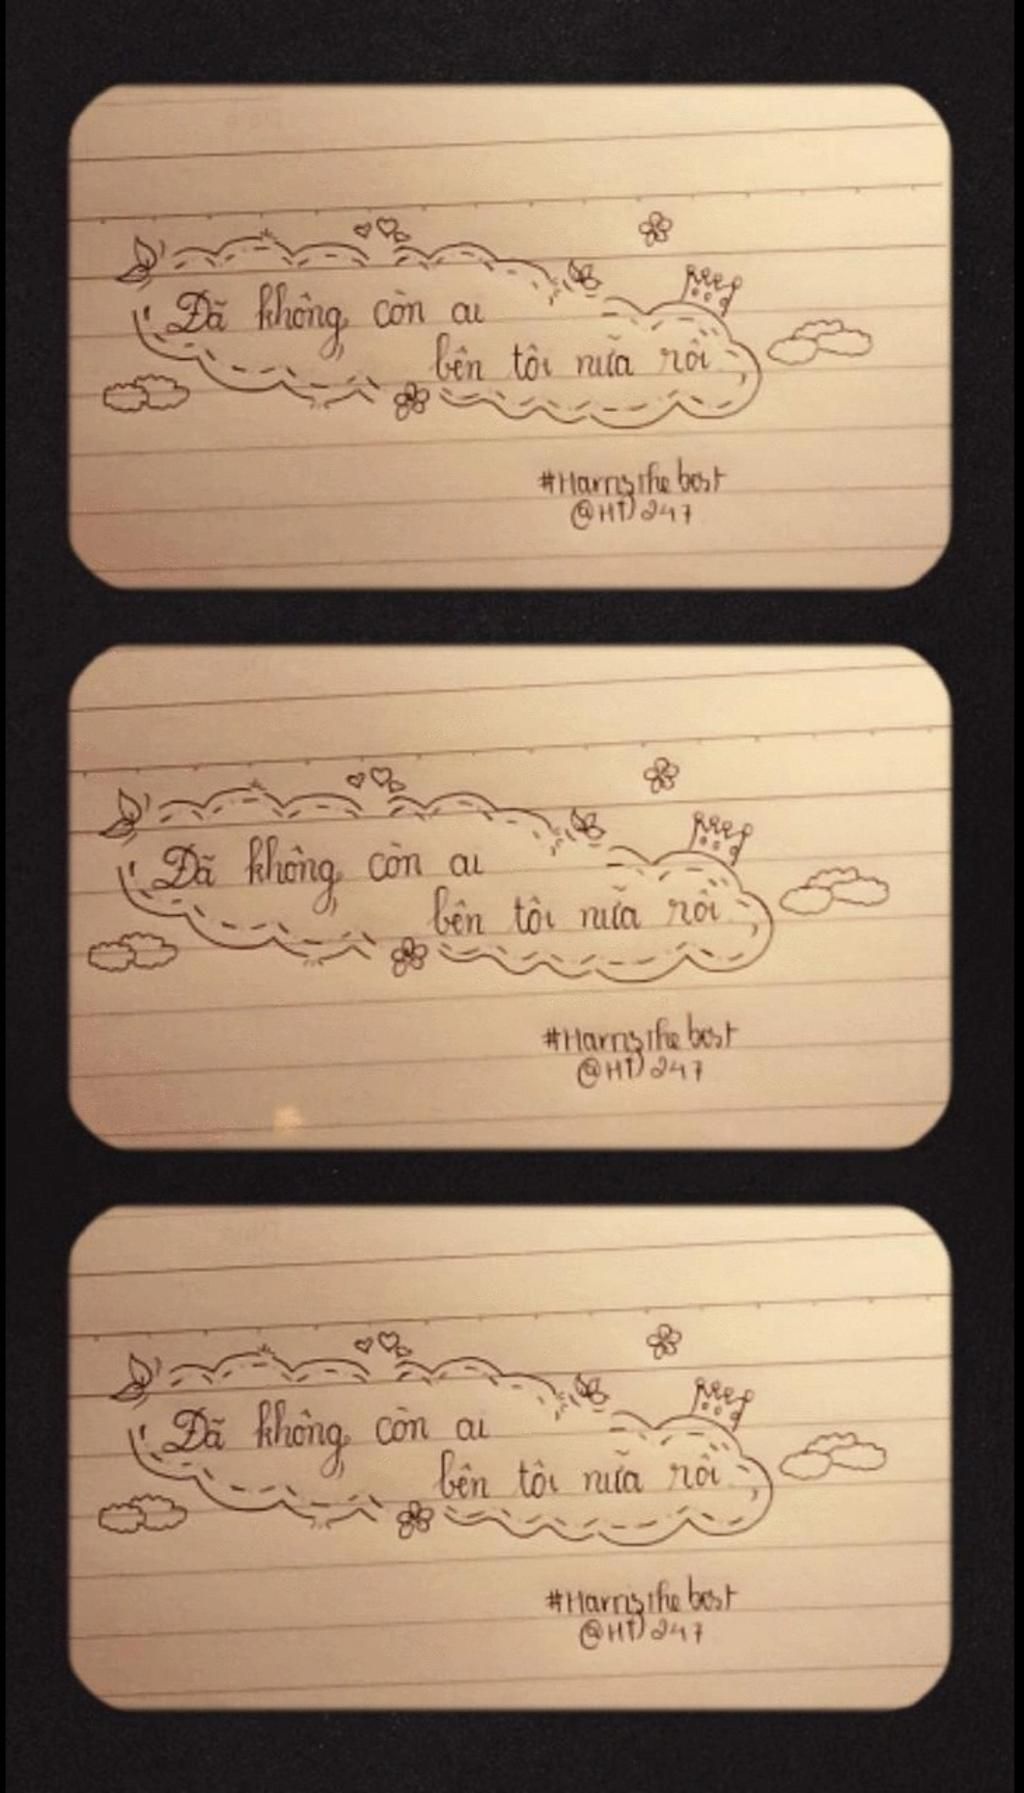 Đã không còn ai
bên tôi nữa rồi
#Harristhebest
@HD247
Đã không còn ai
bên tôi nữa rồi
#Harristhebest
@HD247
Đã không còn ai
bên tôi nữa rồi
#Harristhebest
@HD247